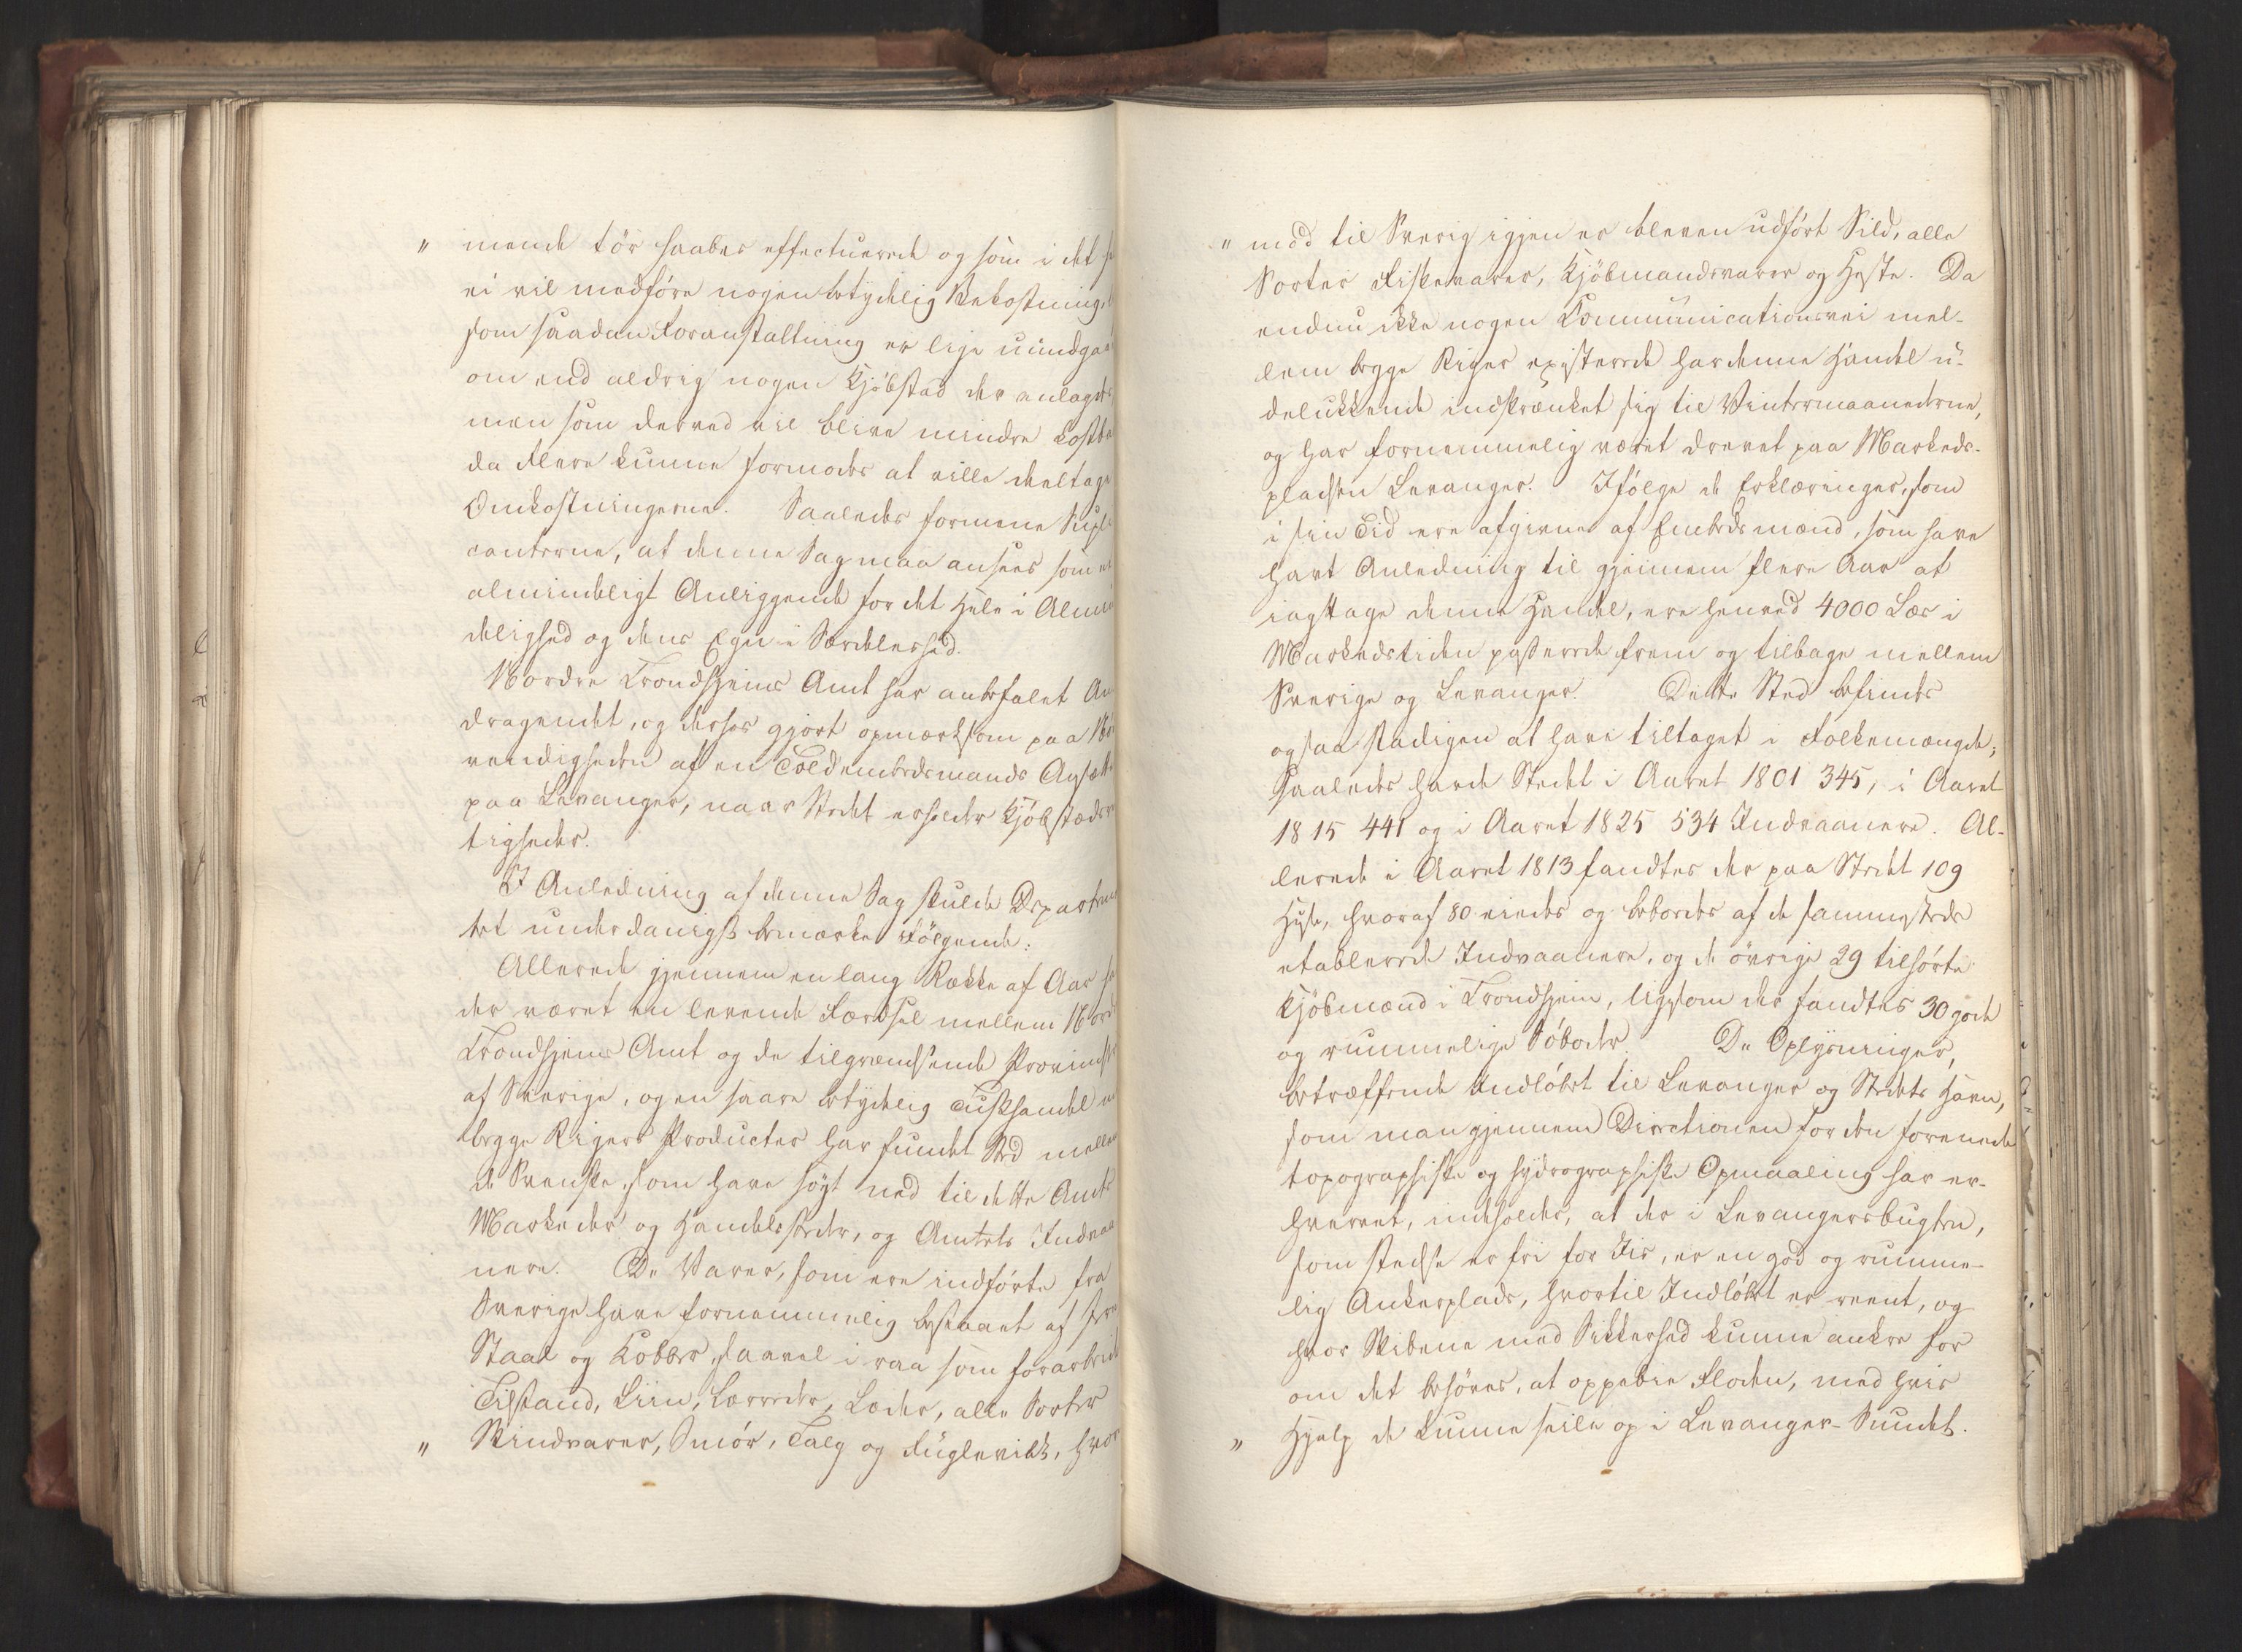 " mende tör haabes effectuerede og som i det
ei vil medföre nogen betydelig Bekostning,
som saadan Foranstaltning er lige uundgaa
om end aldrig nogen Kjöbstad der anlagdes
men som derved vil blive mindre kostba
da Flere kunne formodes at ville deeltage
Omkostningerne. Saaledes formene Supli
canterne, at denne Sag maa ansees som et
almindeligt Anliggende for det Hele i Almi
delighed og dens Egn i Særdeleshed.
Nordre Trondhjems Amt har anbefalet An
dragendet, og derhos gjort opmærksom paa Nöd
vendigheden af en Toldembedsmands Ansætt
paa Levanger, naar Stedet erholder Kjöbstædsre
tigheder.
I Anledning af denne Sag skulde Departem
tet underdanigst bemærke Fölgende:
Allerede gjennem en lang Række af Aar ha
der været en levende Færdsel mellem Nord
Trondhjems Amt og de tilgrændsende Provindser
af Sverige, og en saare betydelig Tuskhandel m
begge Rigers Producter har fundet Sted mellem
de Svenske, som have sögt ned til dette Amts
Markeder og Handelssteder, og Amtets Indvaa
nere. De Varer, som ere indförte fra
Sverige have fornemmelig bestaaet af Jern
Staal og Kobber, saavel i raa som forarbeid
Tilstand, Liin, Lærreder, Læder, alle Sorter
" Skindvarer, Smör, Talg og Fuglevildt, hvor
" mod til Sverig igjen er bleven udfört Sild, alle
Sorter Fiskevarer, Kjöbmandsvarer og Heste. Da
endnu ikke nogen Communicationsvei mel-
lem begge Riger existerede har denne Handel u-
delukkende indskrænket sig til Vintermaanederne,
og har fornemmelig været drevet paa Markeds-
pladsen Levanger. Ifölge de Erklæringer, som
i sin Tid ere afgivne af Embedsmænd, som have
havt Anledning til gjennem flere Aar at
iagttage denne Handel, ere henved 4000 Læs i
Markedstiden passerede frem og tilbage mellem
Sverige og Levanger. Dette Sted befindes
ogsaa stadigen at have tiltaget i Folkemængde;
saaledes havde Stedet i Aaret 1801 345, i Aaret
1815 441 og i Aaret 1825 534 Indvaanere. Al-
lerede i Aaret 1813 fandtes der paa Stedet 109
Huse, hvoraf 80 eiedes og beboedes af de sammesteds
etablerede Indvaanere, og de övrige 29 tilhörte
Kjöbmænd i Trondhjem, ligesom der fandtes 30 gode
og rummelige Söboder. De Oplysninger,
betræffende Indlöbet til Levanger og Stedets Havn,
som man gjennem Directionen for den forenede
topographiske og hydrographiske Opmaaling har er-
hvervet, indeholder, at der i Levangersbugten,
som stedse er fri for Iis, er en god og rumme-
lig Ankerplads, hvortil Indlöbet er reent, og
hvor Skibene med Sikkerhed kunne ankre for
om det behöves, at oppebie Floden, med hvis
" Hjelp de kunne seile op i Levanger-Sundet.